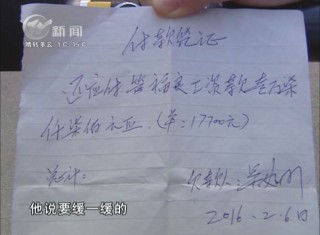 新闻
晴转多云 3℃-15℃
付款凭证
还应付曾福良工资款壹万柒
仟柒佰元正.(率:17700元)
欠款人:
2016.2.6日
他说要缓一缓的